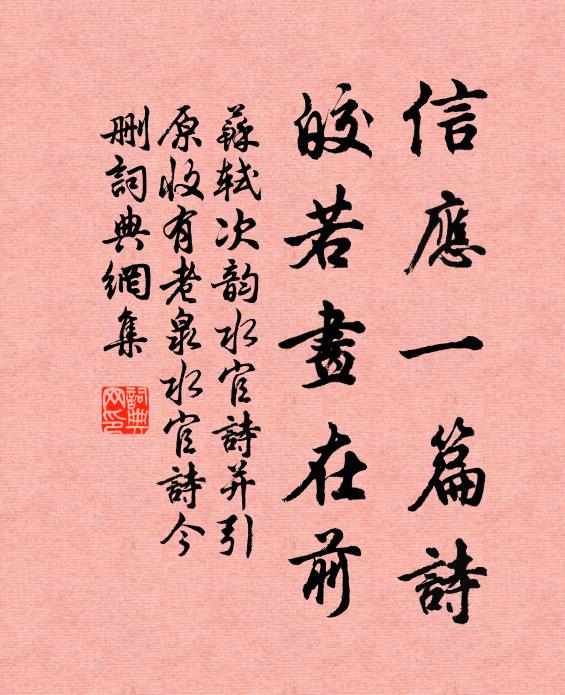 信應一篇詩
皎若畫在前
蘇軾次韵水官詩并引
原收有老泉水官詩今
删詞典網集
詞典网印